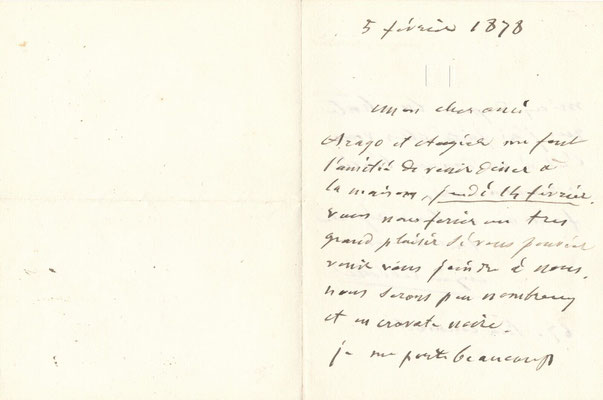 5 février 1878
Mon cher ami
Arago et Augier me font
l'amitié de venir diner à
la maison, jeudi 14 février.
vous nous feriez un très
grand plaisir si vous pouviez
venir vous joindre à nous.
nous serons peu nombreux
et en cravate noire.
je me porte beaucoup